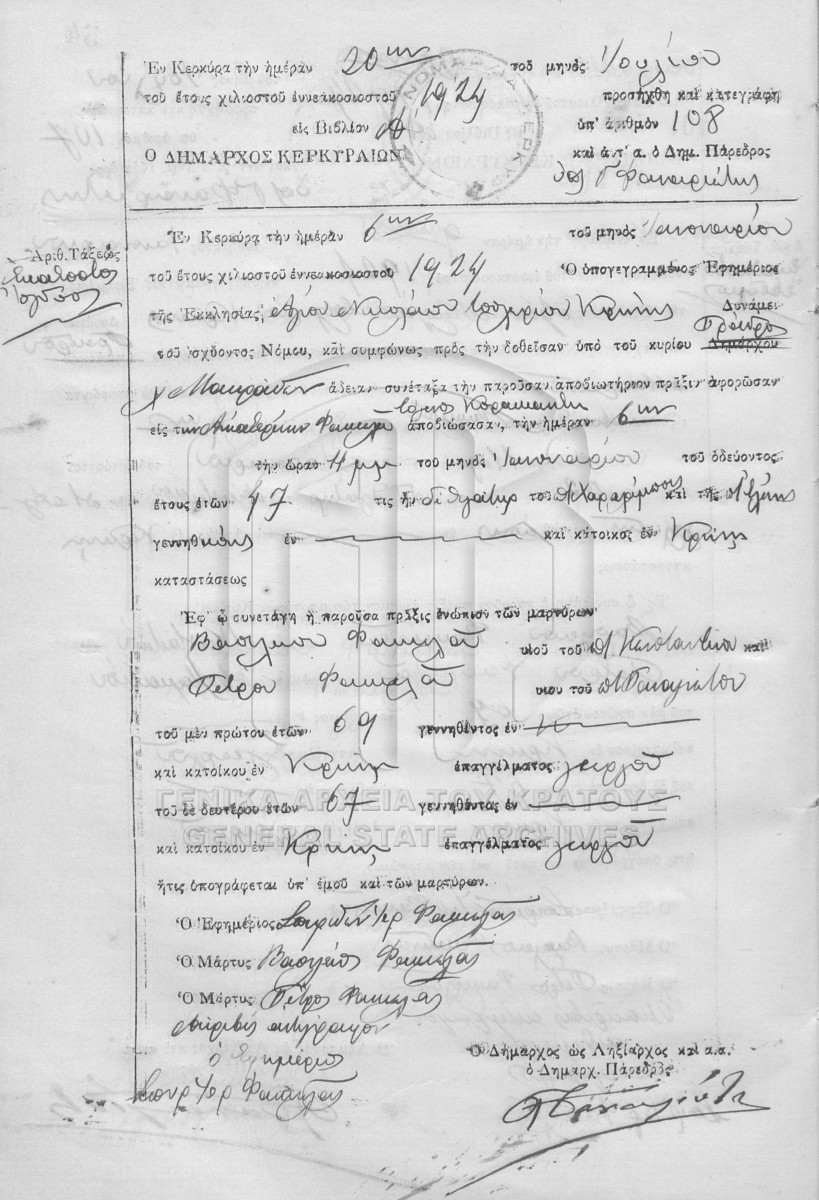 Ἐν Κερκύρᾳ τὴν ἡμέραν 20ην τοῦ μηνὸς Ἰουλίου
τοῦ ἔτους χιλιοστοῦ ἐννεακοσιοστοῦ 1924 προσήχθη καὶ κατεγράφη
εἰς Βιβλίον Α ὑπ' ἀριθμὸν 108
Ο ΔΗΜΑΡΧΟΣ ΚΕΡΚΥΡΑΙΩΝ καὶ ἀ.τ'α. ὁ Δημ. Πάρεδρος
Ἐν Κερκύρᾳ τὴν ἡμέραν 6ην τοῦ μηνὸς Ἰανουαρίου
Ἀριθ. Τάξεως
Ἑκατοστὸς
Ὄγδοος
τοῦ ἔτους χιλιοστοῦ ἐννεακοσιοστοῦ 1924 Ὁ ὑπογεγραμμένος Ἐφημέριος
τῆς Ἐκκλησίας Ἁγίου Νικολάου Κρήνης Δυνάμει
τοῦ ἰσχύοντος Νόμου, καὶ συμφώνως πρὸς τὴν δοθεῖσαν ὑπὸ τοῦ κυρίου Δημάρχου Πρόεδρος
Μακράδων ἄδειαν συνέταξα τὴν παροῦσαν ἀποβιωτήριον πρᾶξιν ἀφορῶσαν
εἰς τὴν Αἰκατερίνην Φακιολᾶ ἀποβιώσασαν, τὴν ἡμέραν 6ην
τὴν ὥραν 4 μμ τοῦ μηνὸς Ἰανουαρίου τοῦ ὁδεύοντος
ἔτους ἐτῶν 47 τις ἦν θυγάτηρ τοῦ Χαραλάμπους καὶ τῆς Ἑλένης
γεννηθ ἐν καὶ κάτοικος ἐν Κρήνης
καταστάσεως
Ἐφ' ᾧ συνετάγη ἡ παροῦσα πρᾶξις ἐνώπιον τῶν μαρτύρων
Βασιλείου Φακιολᾶ υἱοῦ τοῦ Κωνσταντίνου καὶ
Πέτρου Φακιολᾶ υἱοῦ τοῦ Παναγιώτου
τοῦ μὲν πρώτου ἐτῶν 69 γεννηθέντος ἐν
καὶ κατοίκου ἐν Κρήνης ἐπαγγέλματος γεωργοῦ
τοῦ δὲ δευτέρου ἐτῶν 67 γεννηθέντος ἐν
καὶ κατοίκου ἐν Κρήνης ἐπαγγέλματος γεωργοῦ
ἥτις ὑπογράφεται ὑπ' ἐμοῦ καὶ τῶν μαρτύρων.
Ὁ Ἐφημέριος Σπυρίδων Ἱερ Φακιολᾶς
Ὁ Μάρτυς Βασίλειος Φακιολᾶς
Ὁ Μάρτυς Πέτρος Φακιολᾶς
Ἀκριβὲς ἀντίγραφον
ὁ Ἐφημέριος
Σπυρ Ἱερ Φακιολᾶς
Ὁ Δήμαρχος ὡς Ληξίαρχος καὶ α.α.
ὁ Δημαρχ. Πάρεδρος
ΓΕΝΙΚΑ ΑΡΧΕΙΑ ΤΟΥ ΚΡΑΤΟΥΣ
GENERAL STATE ARCHIVES